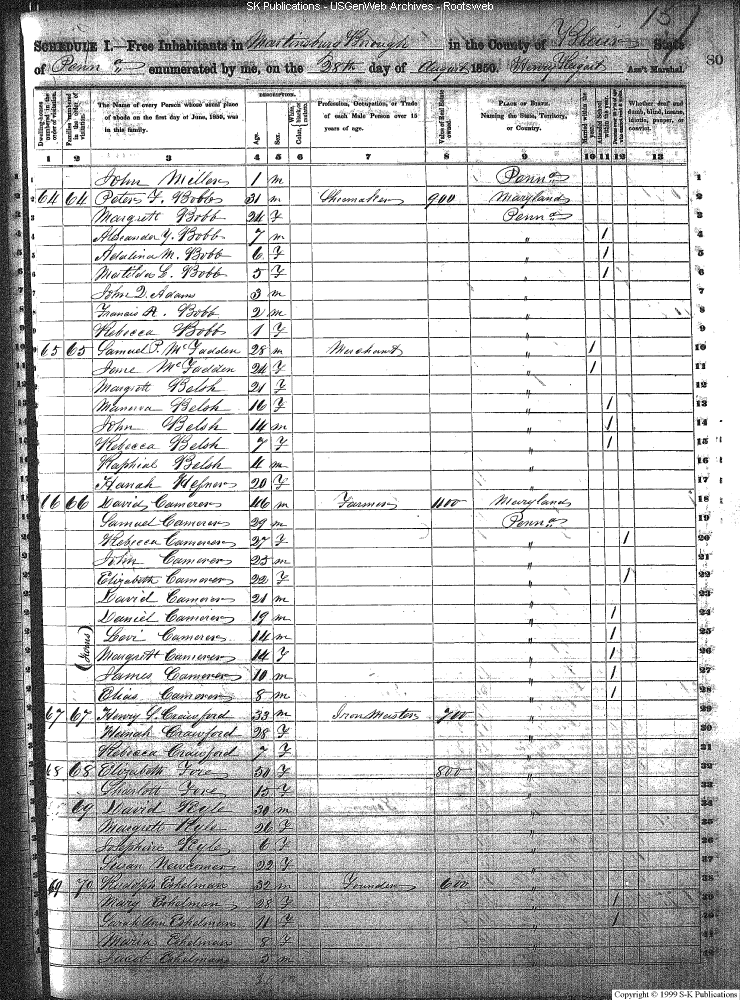 SK Publications - USGenWeb Archives - Rootsweb
157
SCHEDULE I.—Free Inhabitants in Martinsburg Borough in the County of Blair State
of Penna enumerated by me, on the 28th day of August 1850. Henry Ass't Marshal.
80
DESCRIPTION.
Dwelling-houses numbered in the order of visitation.
Families numbered in the order of visitation.
The Name of every Person whose usual place of abode on the first day of June, 1850, was in this family.
Age.
Sex.
Color, White, black, or mulatto.
Profession, Occupation, or Trade of each Male Person over 15 years of age.
Value of Real Estate owned.
PLACE OF BIRTH. Naming the State, Territory, or Country.
Married within the year.
Attended School within the year.
Whether deaf and dumb, blind, insane, idiotic, pauper, or convict.
1 2 3 4 5 6 7 8 9 10 11 12 13
1 John Miller 1 m Penna 1
2 64 64 Peter F. Bobb 31 m Shumaker 900 Maryland 2
3 Margrett Bobb 24 F Penna 3
4 Alexander Y. Bobb 7 m " / 4
5 Adalina M. Bobb 6 F " / 5
6 Matilda L. Bobb 5 F " / 6
7 John Q. Adams 3 m " 7
8 Francis A. Bobb 2 m " 8
9 Rebecca Bobb 1 F " 9
10 65 65 Samuel P. McFadden 28 m Merchant " / 10
11 Jane McFadden 24 F " / 11
12 Margrett Belsh 21 F " 12
13 Manerva Belsh 16 F " / 13
14 John Belsh 14 m " / 14
15 Rebecca Belsh 7 F " / 15
16 Raphial Belsh 4 m " 16
17 Hanah Hefner 20 F " 17
18 16 66 David Camerer 46 m Farmer 400 Maryland 18
19 Samuel Camerer 29 m Penna 19
20 Rebecca Camerer 27 F " / 20
21 John Camerer 25 m " 21
22 Elizabeth Camerer 22 F " / 22
23 David Camerer 21 m " 23
24 Daniel Camerer 19 m " / 24
25 Levi Camerer 14 m " / 25
26 (Twins) Margrett Camerer 14 F " / 26
27 James Camerer 10 m " / 27
28 Elias Camerer 8 m " / 28
29 67 67 Henry S. Crawford 33 m Iron Master 700 " 29
30 Hanah Crawford 28 F " 30
31 Rebecca Crawford 7 F " 31
32 68 68 Elizabeth Fore 50 F 800 " 32
Sharlott Fore 15 F "
69 David Kyle 30 m "
Margrett Kyle 26 F "
Josephine Kyle 6 F "
Susan Newcomer 22 F "
69 70 Rudolph Eshelman 32 m Founder 600 "
Mary Eshelman 28 F " /
Sarah Ann Eshelman 11 F " /
Maria Eshelman 8 F "
Jacob Eshelman 5 m "
Copyright © 1999 S-K Publications